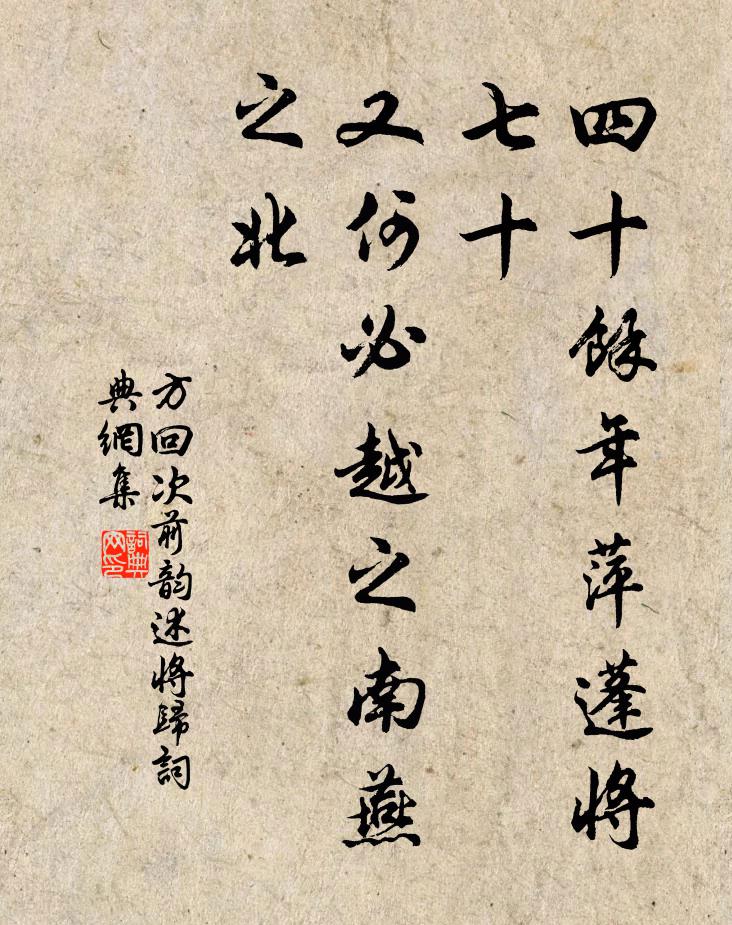 四十餘年萍蓬將
七十
又何必越之南燕
之北
方回次前韵述將歸詞
典網集
詞典
网印